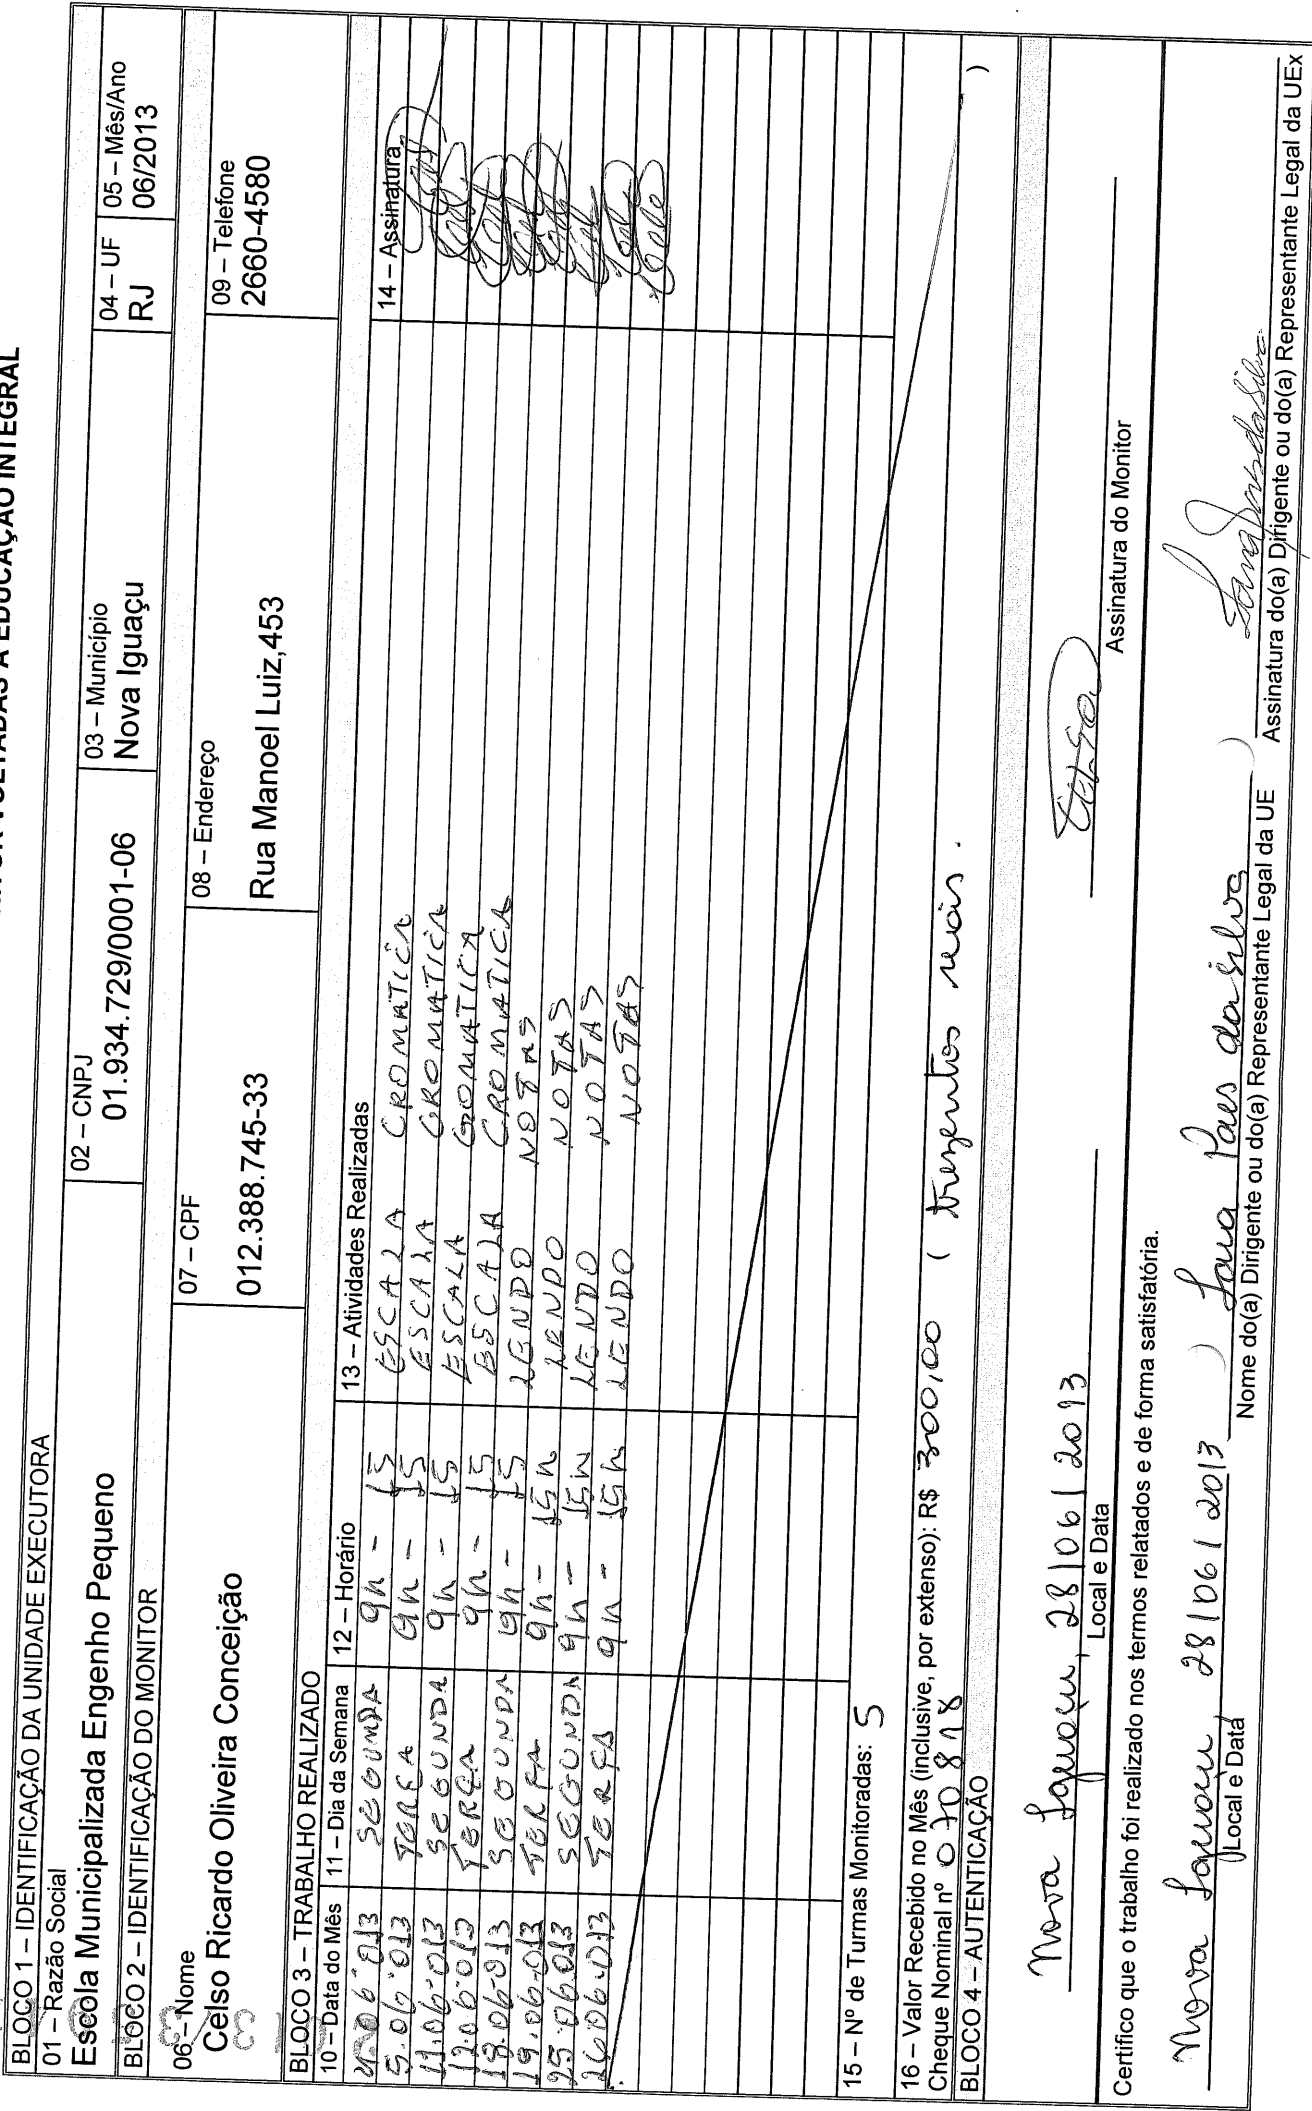 VOLTADAS À EDUCAÇÃO INTEGRAL
BLOCO 1 – IDENTIFICAÇÃO DA UNIDADE EXECUTORA
01 – Razão Social
Escola Municipalizada Engenho Pequeno
02 – CNPJ
01.934.729/0001-06
03 – Município
Nova Iguaçu
04 – UF
RJ
05 – Mês/Ano
06/2013
BLOCO 2 – IDENTIFICAÇÃO DO MONITOR
06 – Nome
Celso Ricardo Oliveira Conceição
07 – CPF
012.388.745-33
08 – Endereço
Rua Manoel Luiz,453
09 – Telefone
2660-4580
BLOCO 3 – TRABALHO REALIZADO
10 – Data do Mês 11 – Dia da Semana 12 – Horário 13 – Atividades Realizadas 14 – Assinatura
4.06.013 SEGUNDA 9h - 15 ESCALA CROMATICA
5.06.013 TERÇA 9h - 15 ESCALA CROMATICA
11.06.013 SEGUNDA 9h - 15 ESCALA CROMATICA
12.06.013 TERÇA 9h - 15 ESCALA CROMATICA
18.06.013 SEGUNDA 9h - 15 LENDO NOTAS
19.06.013 TERÇA 9h - 15h LENDO NOTAS
25.06.013 SEGUNDA 9h - 15h LENDO NOTAS
26.06.013 TERÇA 9h - 15h LENDO NOTAS
15 – Nº de Turmas Monitoradas: 5
16 – Valor Recebido no Mês (inclusive, por extenso): R$ 300,00 ( trezentos reais. )
Cheque Nominal nº 070818
BLOCO 4 – AUTENTICAÇÃO
Nova Iguaçu, 28/06/2013
Local e Data
Celso
Assinatura do Monitor
Certifico que o trabalho foi realizado nos termos relatados e de forma satisfatória.
Nova Iguaçu, 28/06/2013
Local e Data
Sara Paes da Silva
Nome do(a) Dirigente ou do(a) Representante Legal da UE
Sara Paes da Silva
Assinatura do(a) Dirigente ou do(a) Representante Legal da UEx